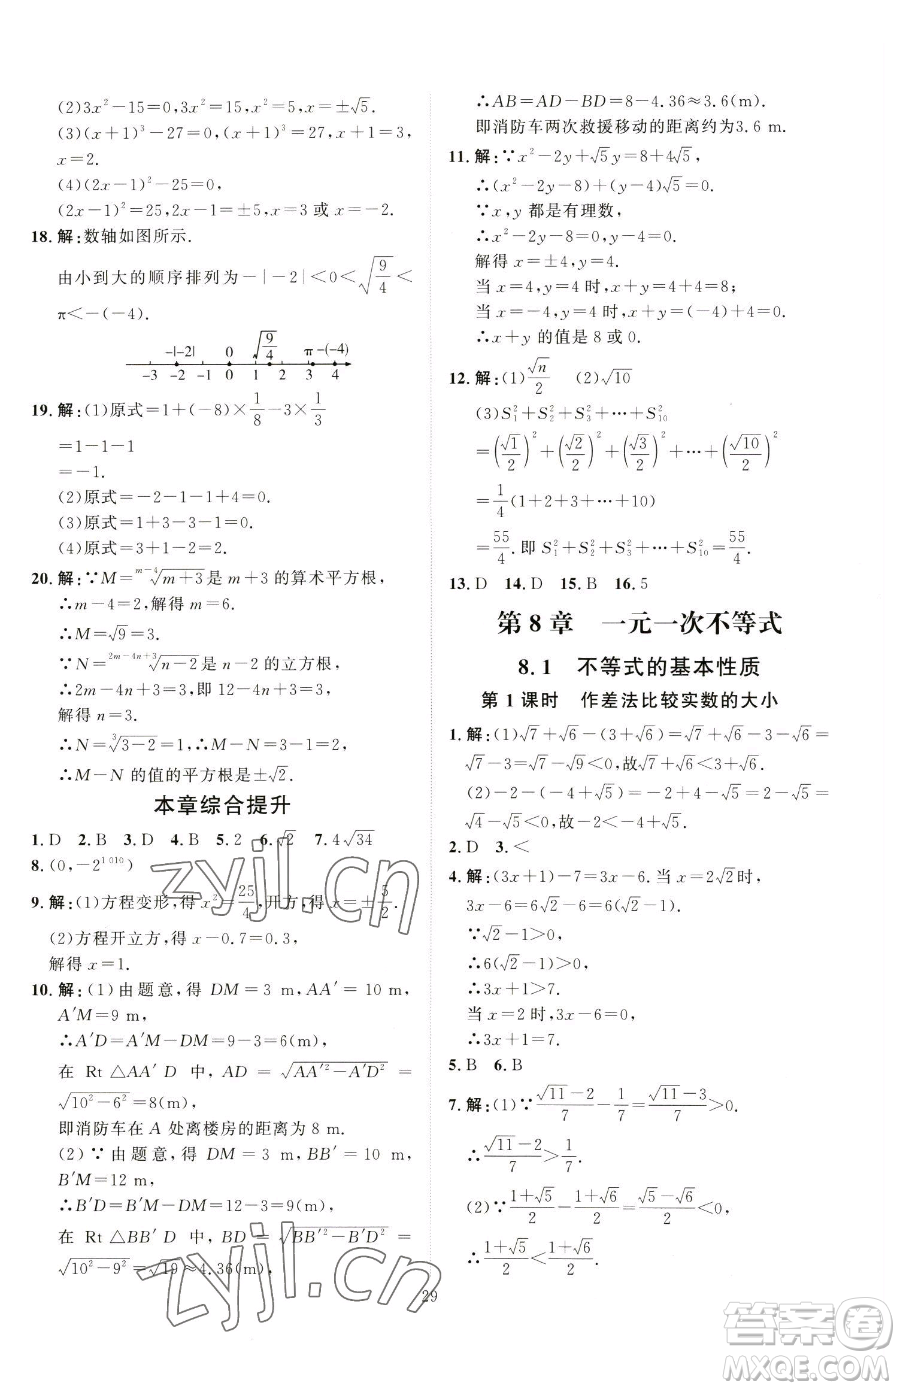 (2)3x²-15=0,3x²=15,x²=5,x=±√5.
(3)(x+1)³-27=0,(x+1)³=27,x+1=3,
x=2.
(4)(2x-1)²-25=0,
(2x-1)²=25,2x-1=±5,x=3 或 x=-2.
18.解:数轴如图所示.
由小到大的顺序排列为-|-2|<0<√(9/4)<
π<-(-4).
-|-2| 0 √(9/4) π -(-4)
-3 -2 -1 0 1 2 3 4
19.解:(1)原式=1+(-8)×1/8-3×1/3
=1-1-1
=-1.
(2)原式=-2-1-1+4=0.
(3)原式=1+3-3-1=0.
(4)原式=-1+3-2=0.
20.解:∵M=ᵐ⁻⁴√(m+3)是 m+3 的算术平方根,
∴m-4=2,解得 m=6.
∴M=√9=3.
∵N=²ᵐ⁻⁴ⁿ⁺³√(n-2)是 n-2 的立方根,
∴2m-4n+3=3,即 12-4n+3=3,
解得 n=3.
∴N=³√(3-2)=1,∴M-N=3-1=2.
∴M-N 的值的平方根是±√2.
本章综合提升
1.D 2.B 3.D 4.B 5.2 6.√2 7.4√34
8.(0,-2¹⁰¹⁰)
9.解:(1)方程变形,得 x²=25/4,开方,得 x=±5/2.
(2)方程开立方,得 x-0.7=0.3,
解得 x=1.
10.解:(1)由题意,得 DM=3 m,AA′=10 m,
A′M=9 m,
∴A′D=A′M-DM=9-3=6(m),
在 Rt △AA′D 中,AD=√(AA′²-A′D²)=
√(10²-6²)=8(m),
即消防车在 A 处离楼房的距离为 8 m.
(2)∵由题意,得 DM=3 m,BB′=10 m,
B′M=12 m,
∴B′D=B′M-DM=12-3=9(m),
在 Rt △BB′D 中,BD=√(BB′²-B′D²)=
√(10²-9²)=√19≈4.36(m),
∴AB=AD-BD=8-4.36≈3.6(m).
即消防车两次救援移动的距离约为3.6 m.
11.解:∵x²-2y+√5y=8+4√5,
∴(x²-2y-8)+(y-4)√5=0.
∵x,y 都是有理数,
∴x²-2y-8=0,y-4=0.
解得 x=±4,y=4.
当 x=4,y=4 时,x+y=4+4=8;
当 x=-4,y=4 时,x+y=(-4)+4=0.
∴x+y 的值是 8 或 0.
12.解:(1)√n/2 (2)√10
(3)S₁²+S₂²+S₃²+…+S₁₀²
=(√1/2)²+(√2/2)²+(√3/2)²+…+(√10/2)²
=1/4(1+2+3+…+10)
=55/4.即 S₁²+S₂²+S₃²+…+S₁₀²=55/4.
13.D 14.D 15.B 16.5
第 8 章 一元一次不等式
8.1 不等式的基本性质
第 1 课时 作差法比较实数的大小
1.解:(1)√7+√6-(3+√6)=√7+√6-3-√6=
√7-3=√7-√9<0,故√7+√6<3+√6.
(2)-2-(-4+√5)=-2+4-√5=2-√5=
√4-√5<0,故-2<-4+√5.
2.D 3.<
4.解:(3x+1)-7=3x-6,当 x=2√2时,
3x-6=6√2-6=6(√2-1).
∵√2-1>0,
∴6(√2-1)>0.
∴3x+1>7.
当 x=2时,3x-6=0,
∴3x+1=7.
5.B 6.B
7.解:(1)∵(√11-2)/7-1/7=(√11-3)/7>0.
∴(√11-2)/7>1/7.
(2)∵(1+√5)/2-(1+√6)/2=(√5-√6)/2<0,
∴(1+√5)/2<(1+√6)/2.
29
zyjl.cn
zyjl.cn
答案圈
MXQE.COM